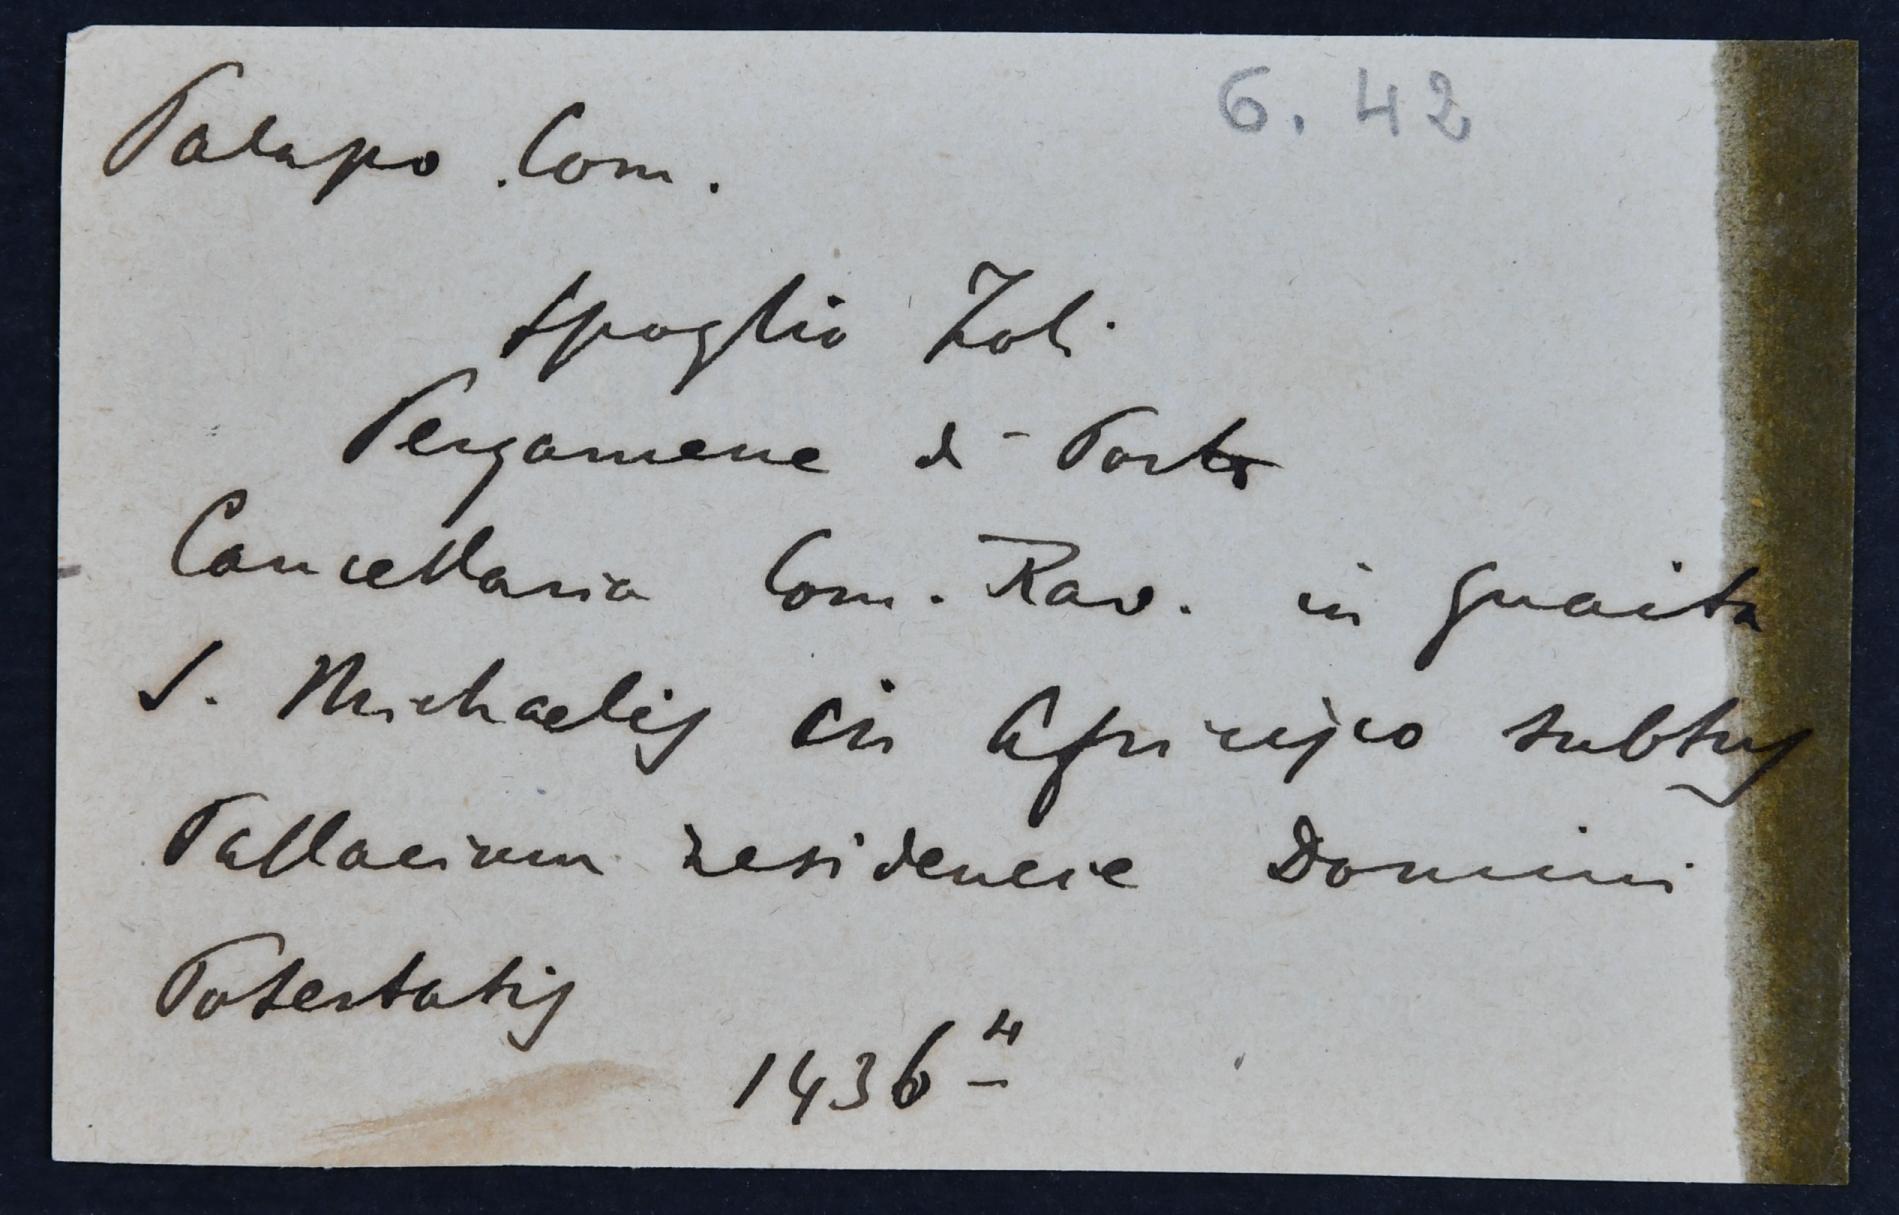 6. 42
Palazzo Com.
Spoglio Zoli
Pergamene di Porto
Cancellaria Com. Rav. in Guaita
S. Michaelis in Africisco subtus
Pallacium residencie Domini
Potestatis
1436